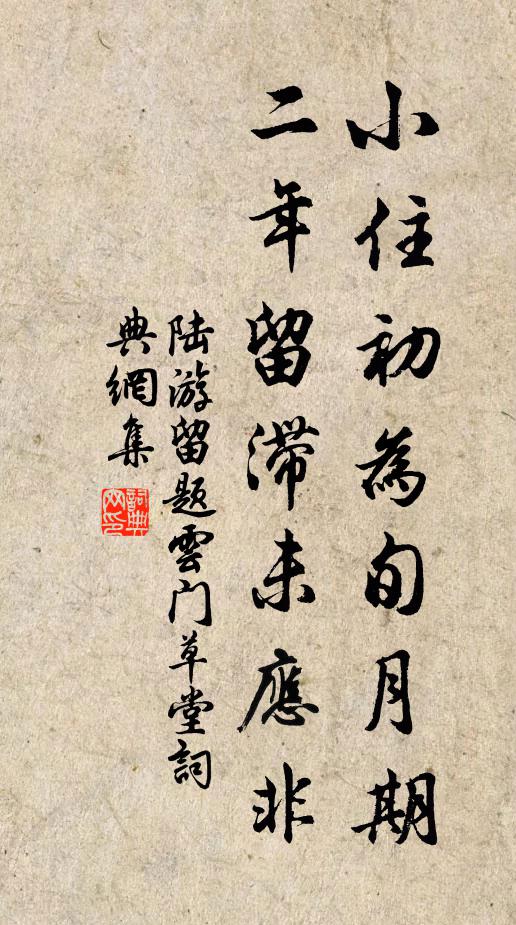 小住初為旬月期
二年留滯未應非
陆游留题雲门草堂詞
典網集
詞典网印